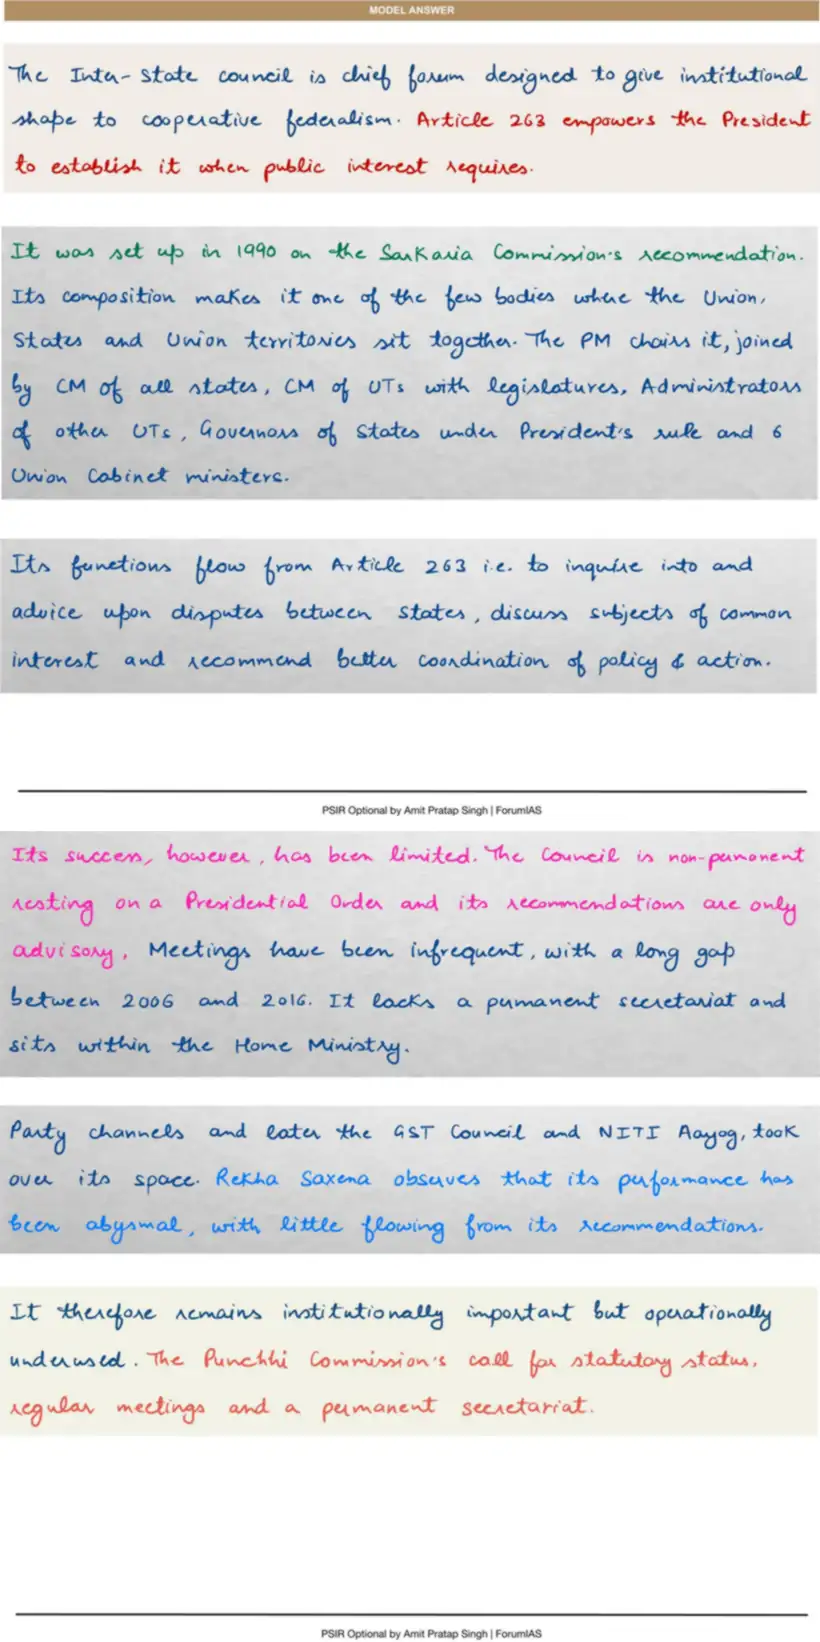 MODEL ANSWER
The Inter-State council is chief forum designed to give institutional
shape to cooperative federalism. Article 263 empowers the President
to establish it when public interest requires.
It was set up in 1990 on the Sarkaria Commission's recommendation.
Its composition makes it one of the few bodies where the Union,
States and Union territories sit together. The PM chairs it, joined
by CM of all states, CM of UTs with legislatures, Administrators
of other UTs, Governors of States under President's rule and 6
Union Cabinet ministers.
Its functions flow from Article 263 i.e. to inquire into and
advice upon disputes between states, discuss subjects of common
interest and recommend better coordination of policy & action.
PSIR Optional by Amit Pratap Singh | ForumIAS
Its success, however, has been limited. The Council is non-permanent
resting on a Presidential Order and its recommendations are only
advisory. Meetings have been infrequent, with a long gap
between 2006 and 2016. It lacks a permanent secretariat and
sits within the Home Ministry.
Party channels and later the GST Council and NITI Aayog, took
over its space. Rekha Saxena observes that its performance has
been abysmal, with little flowing from its recommendations.
It therefore remains institutionally important but operationally
underused. The Punchhi Commission's call for statutory status,
regular meetings and a permanent secretariat.
PSIR Optional by Amit Pratap Singh | ForumIAS